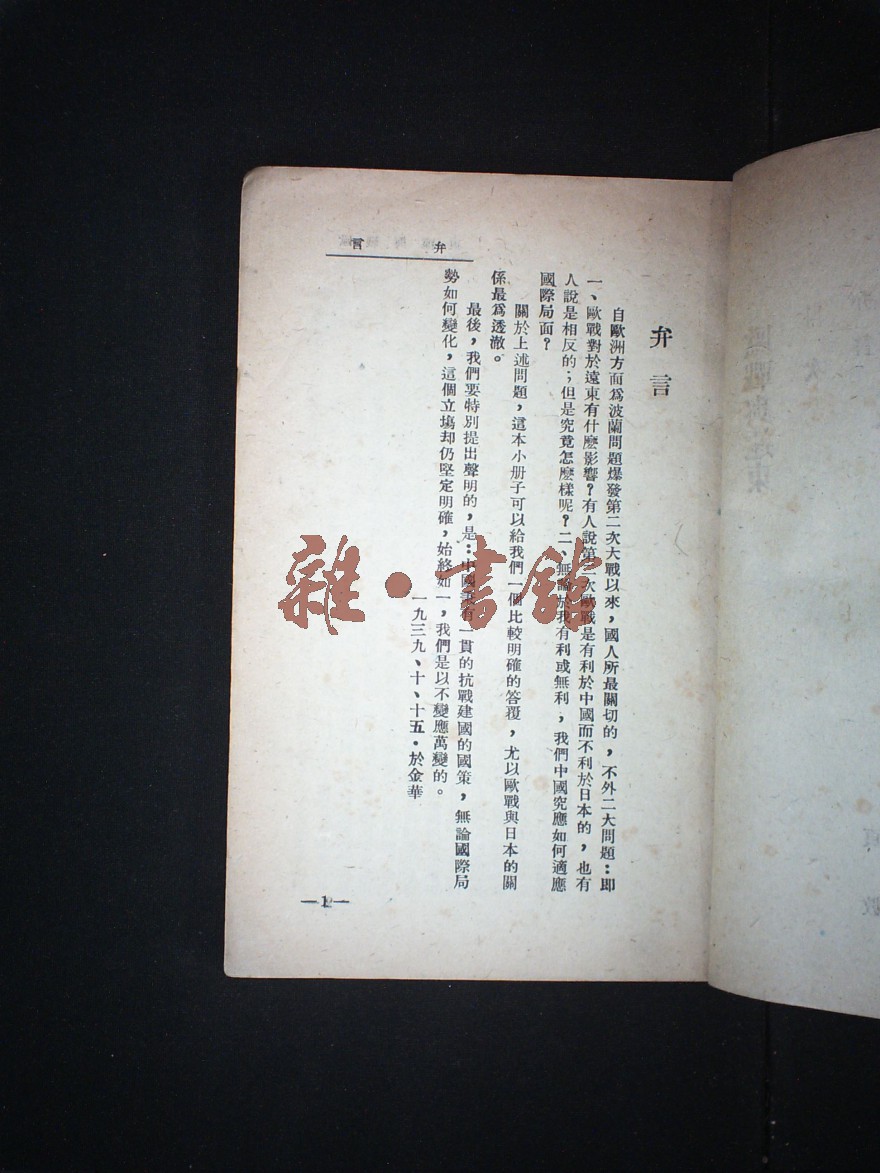 弁言
弁言
自歐洲方面爲波蘭問題爆發第二次大戰以來，國人所最關切的，不外二大問題：即
一、歐戰對於遠東有什麽影響？有人說第二次歐戰是有利於中國而不利於日本的，也有
人說是相反的；但是究竟怎麽樣呢？二、無論於我有利或無利，我們中國究應如何適應
國際局面？
關於上述問題，這本小册子可以給我們一個比較明確的答覆，尤以歐戰與日本的關
係最爲透澈。
最後，我們要特別提出聲明的，是：中國有一貫的抗戰建國的國策，無論國際局
勢如何變化，這個立塲却仍堅定明確，始終如一，我們是以不變應萬變的。
一九三九、十、十五·於金華
—1—
雜·書館
歐戰與遠東